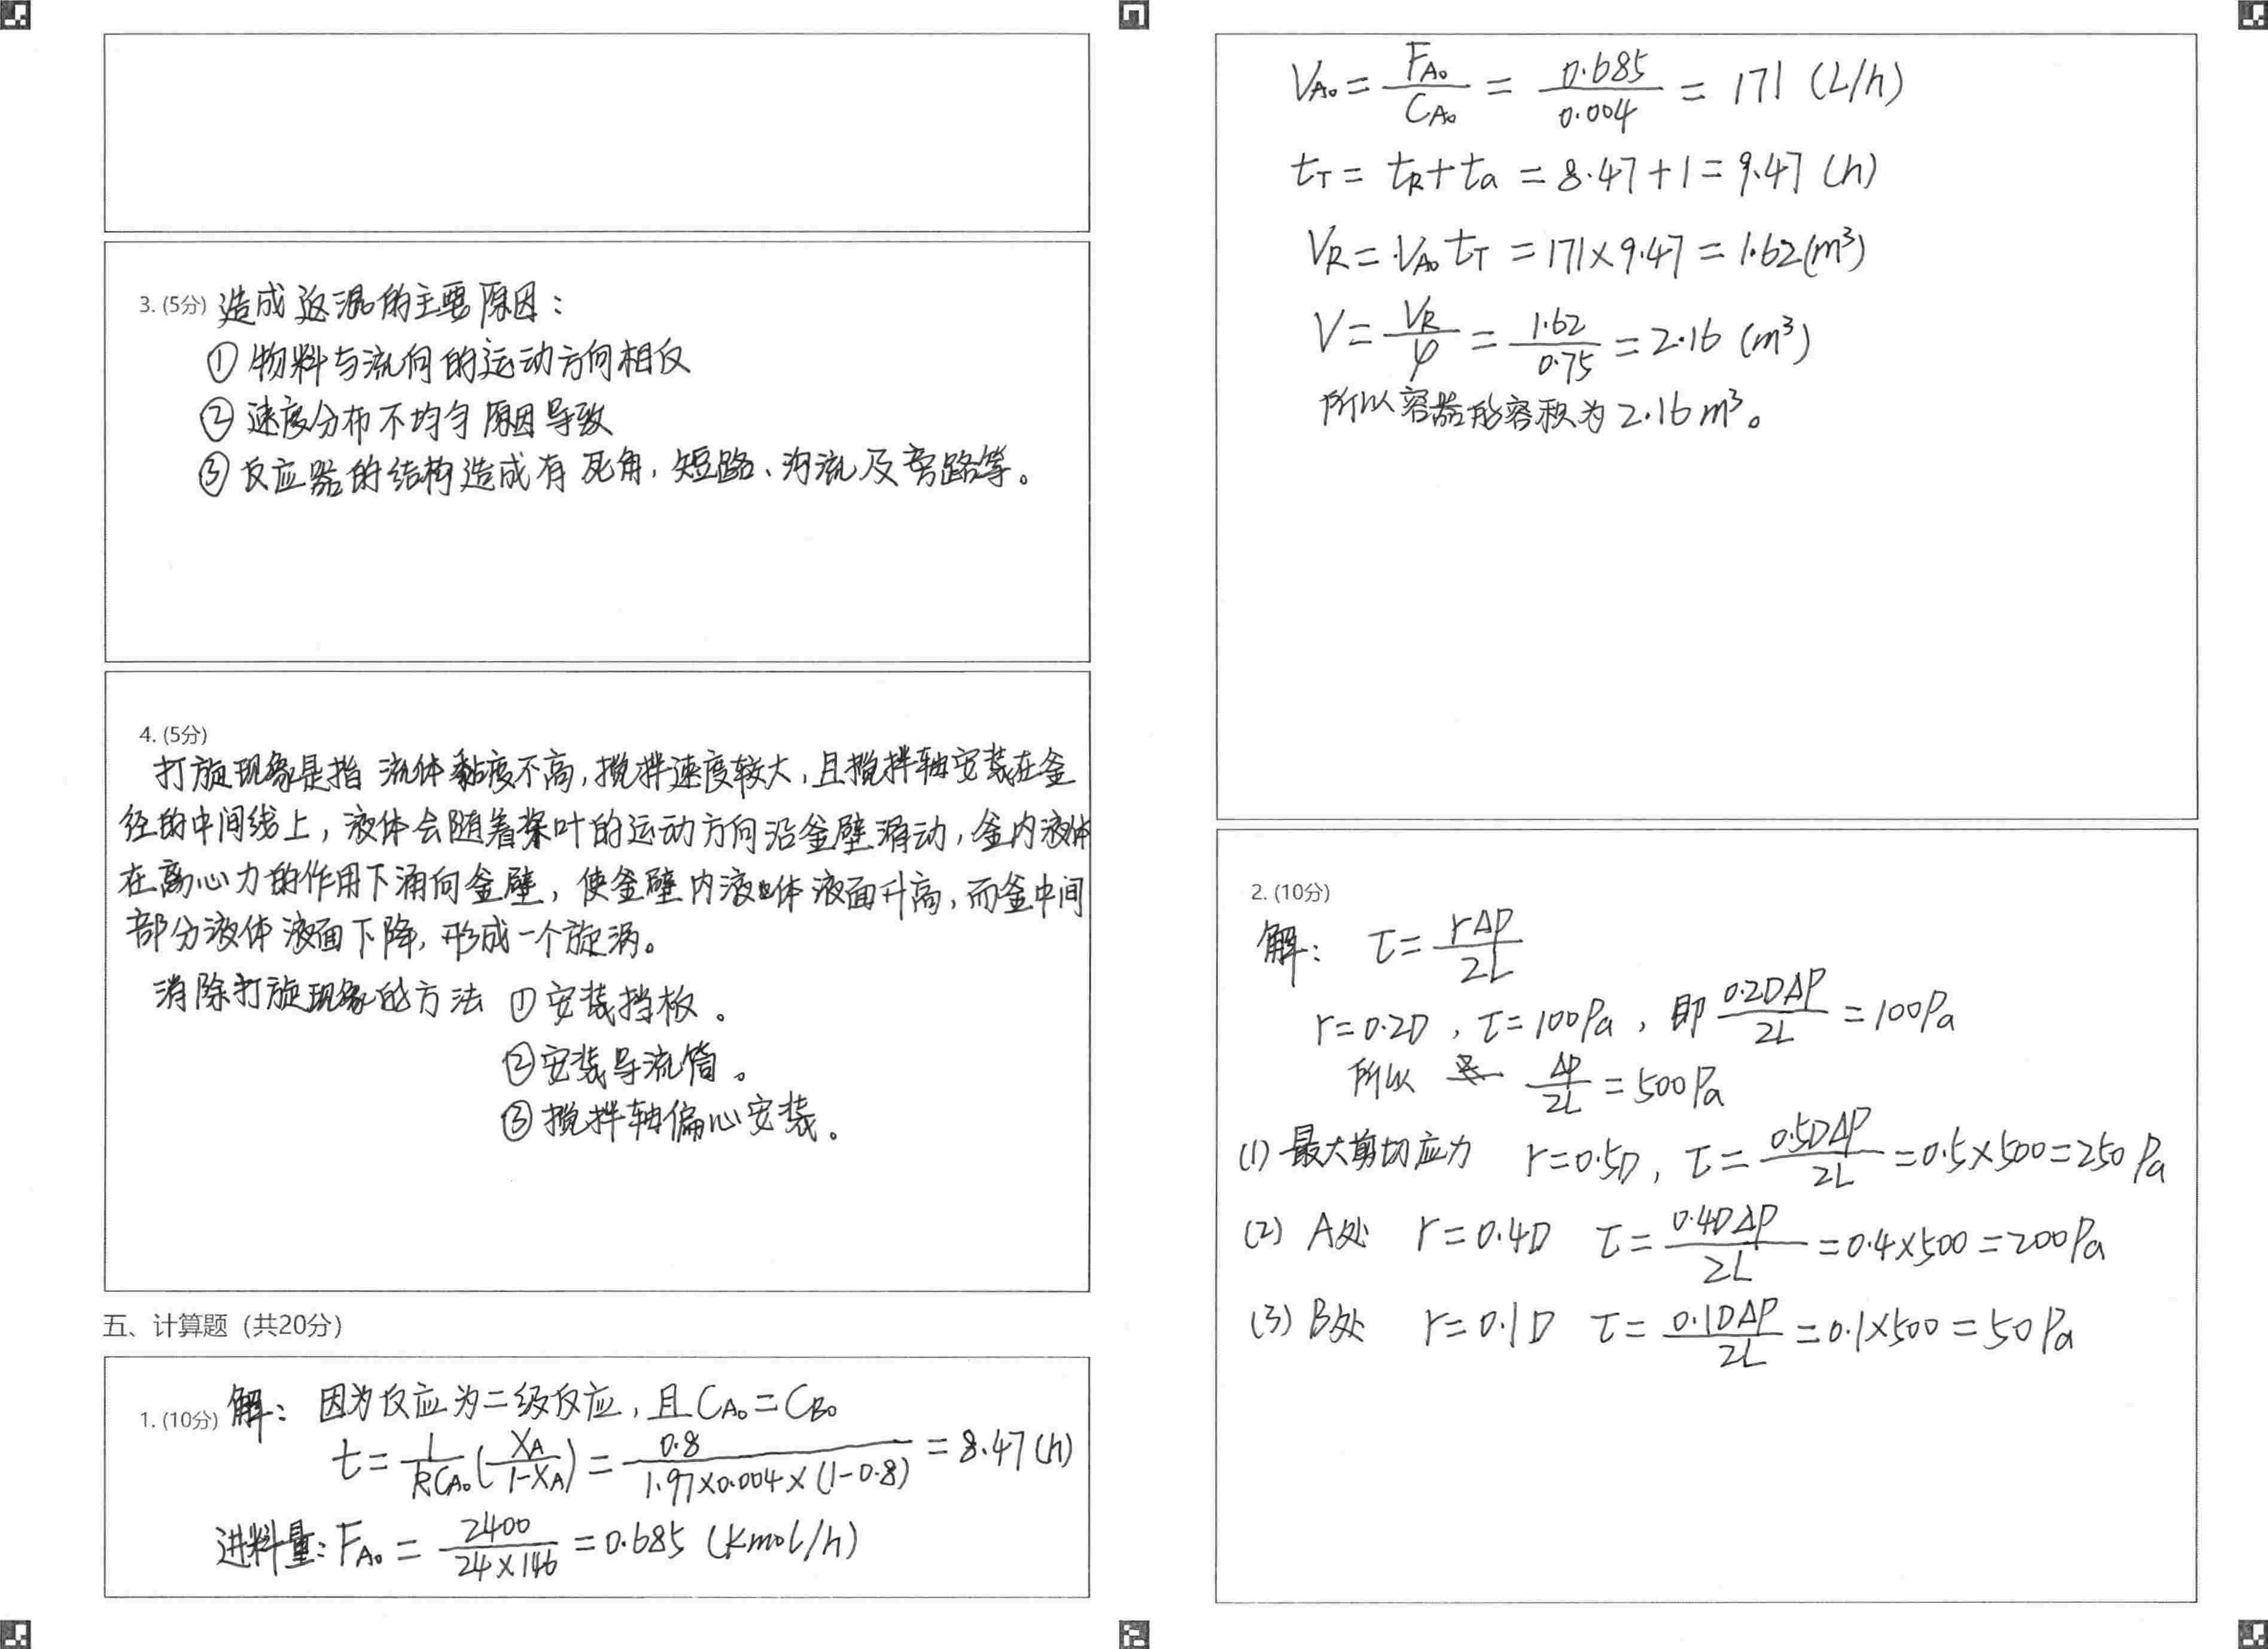 3. (5分) 造成返混的主要原因：
① 物料与流向的运动方向相反
② 速度分布不均匀原因导致
③ 反应器的结构造成有死角，短路、沟流及旁路等。
4. (5分)
打旋现象是指 流体黏度不高，搅拌速度较大，且搅拌轴安装在釜
径的中间线上，液体会随着桨叶的运动方向沿釜壁滑动，釜内液体
在离心力的作用下涌向釜壁，使釜壁内液体液面升高，而釜中间
部分液体液面下降，形成一个旋涡。
消除打旋现象的方法 ① 安装挡板。
② 安装导流筒。
③ 搅拌轴偏心安装。
五、计算题（共20分）
1. (10分) 解：因为反应为二级反应，且 C_{A0} = C_{B0}
t = \frac{1}{kC_{A0}}(\frac{X_A}{1-X_A}) = \frac{0.8}{1.97×0.004×(1-0.8)} = 8.47 (h)
进料量：F_{A0} = \frac{2400}{24×146} = 0.685 (Kmol/h)
V_{A0} = \frac{F_{A0}}{C_{A0}} = \frac{0.685}{0.004} = 171 (L/h)
t_T = t_R + t_a = 8.47 + 1 = 9.47 (h)
V_R = V_{A0} t_T = 171×9.47 = 1.62 (m³)
V = \frac{V_R}{φ} = \frac{1.62}{0.75} = 2.16 (m³)
所以容器的容积为 2.16 m³。
2. (10分)
解： τ = \frac{rΔP}{2L}
r = 0.2D，τ = 100Pa，即 \frac{0.2DΔP}{2L} = 100Pa
所以 \frac{ΔP}{2L} = 500Pa
(1) 最大剪切应力 r = 0.5D，τ = \frac{0.5DΔP}{2L} = 0.5×500 = 250Pa
(2) A处 r = 0.4D τ = \frac{0.4DΔP}{2L} = 0.4×500 = 200Pa
(3) B处 r = 0.1D τ = \frac{0.1DΔP}{2L} = 0.1×500 = 50Pa